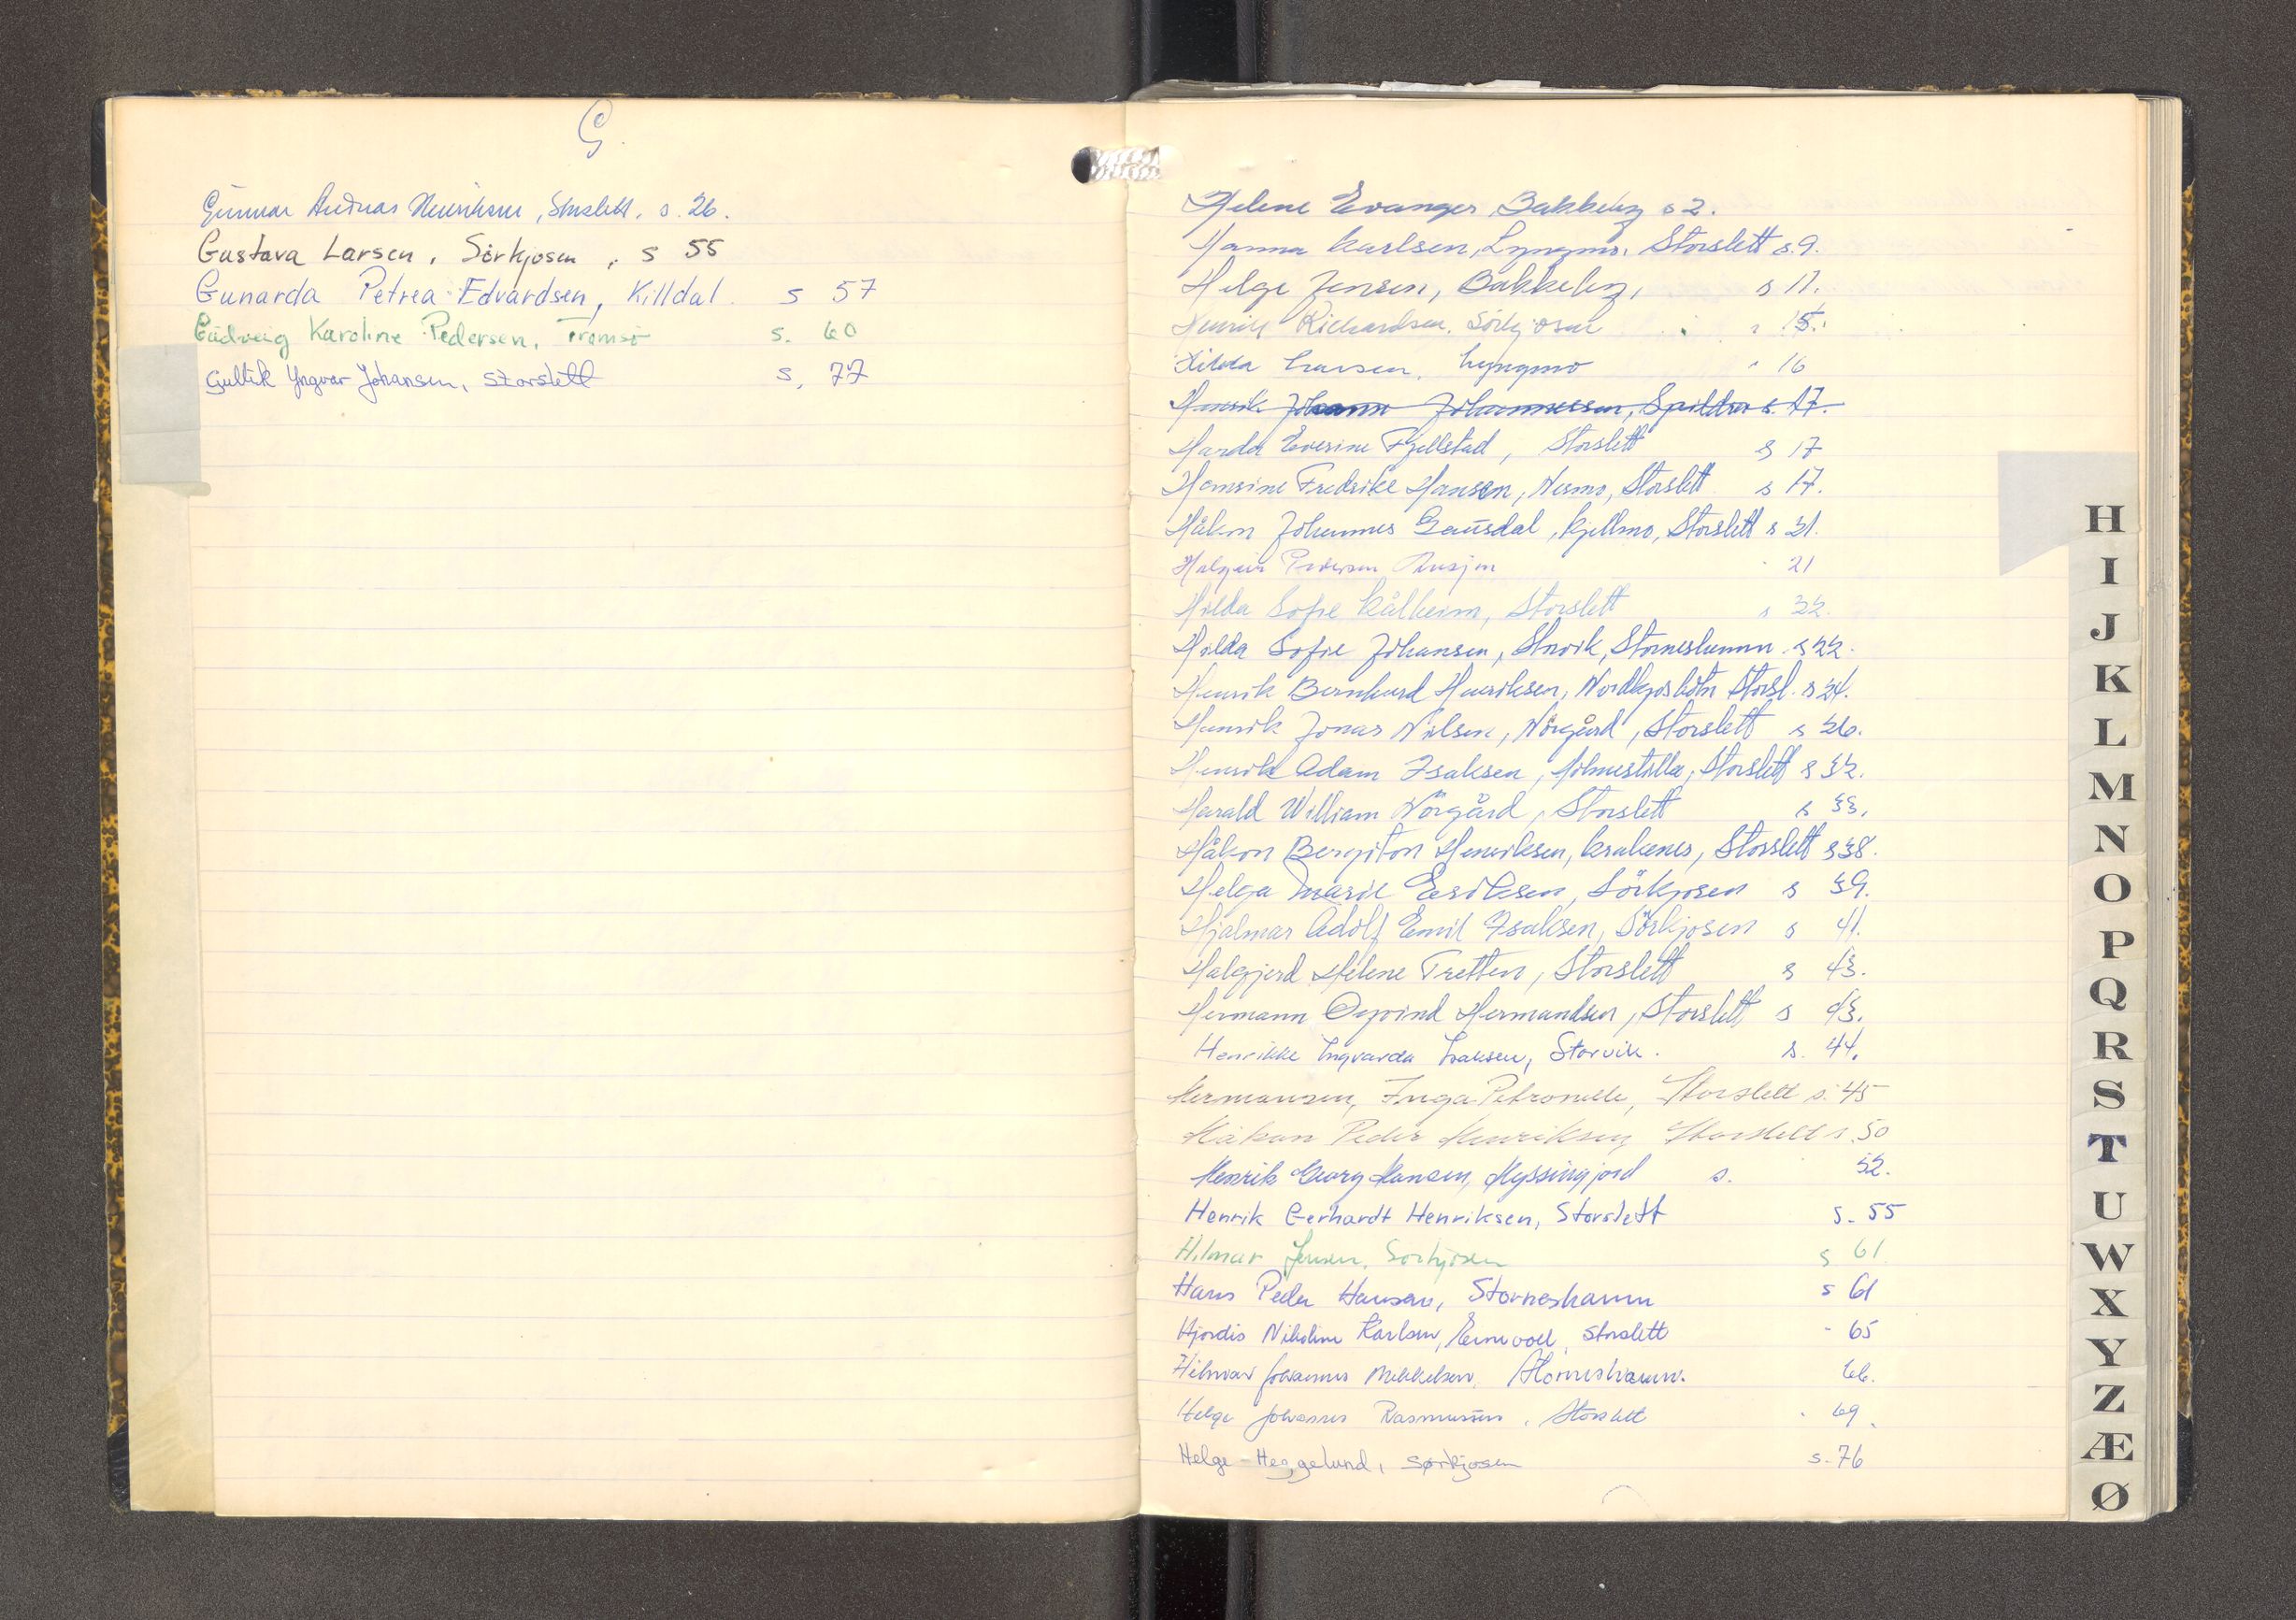 G.
Gunnar Andreas Henriksen, Storslett, s. 26.
Gustava Larsen, Sörkjosen, s 55
Gunarda Petrea Edvardsen, Killdal. s 57
Gudveig Karoline Pedersen, Tromsö s. 60
Gultik Yngvar Johansen, Storslett s. 77
Helene Evanger Bakkeby s 2.
Hanna Karlsen, Lyngmo, Storslett s. 9.
Helge Jensen, Bakkeby, s 11.
Henrik Richardsen, Sörkjosen 15.
Hilda Larsen, Lyngmo 16
Henrik Johann Johannessen, Spildra s. 17.
Harda Everine Fjellstad, Storslett s 17
Hansine Fredrike Hansen, Nesmo, Storslett s 17.
Håkon Johannes Gausdal, Kjellmo, Storslett s 21.
Halgeir Pedersen 21
Hilda Sofie Kålheim, Storslett s 22.
Hilda Sofie Johansen, Storvik, Storneshamn. s 22.
Henrik Bernhard Henriksen, Nordkjosbotn Storsl. s 24.
Henrik Jonas Nilsen, Nörgård, Storslett s 26.
Henrik Adam Isaksen, Storslett s 32.
Harald William Nörgård, Storslett s 33.
Håkon Bergiton Henriksen, Krakenes, Storslett s 38.
Helga Marie Eriksen, Sörkjosen s 39.
Hjalmar Adolf Emil Isaksen, Sörkjosen s 41.
Halgjerd Helene Tretten, Storslett s 43.
Hermann Oyvind Hermandsen, Storslett s 43.
Henrikke Ingvarda Isaksen, Storvik. s. 44.
Hermansen, Inga Petronelle, Storslett s. 45
Håkon Peder Henriksen, Storslett s. 50
Henrik Georg Hansen, Myssingjord s. 52.
Henrik Gerhardt Henriksen, Storslett s. 55
Hilmar Jensen, Sörkjosen s 61
Hans Peder Hansen, Storneshamn s 61
Hjördis Nikoline Karlsen, Storslett - 65
Hilmar Johannes Mikkelsen, Storneshamn. 66.
Helge Johannes Rasmussen, Storslett 69.
Helge Heggelund, Sørkjosen s. 76
H
I
J
K
L
M
N
O
P
Q
R
S
T
U
W
X
Y
Z
Æ
Ø